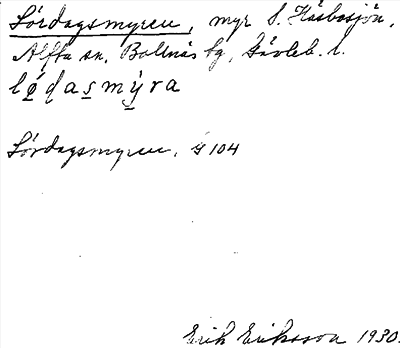 Lördagsmyren, myr S. Håsbosjön,
Alfta sn, Bollnäs tg, Gävleb. l.
lø̜ḍas̲mý̲ra
Lördagsmyren. G 104
Erik Eriksson 1930.